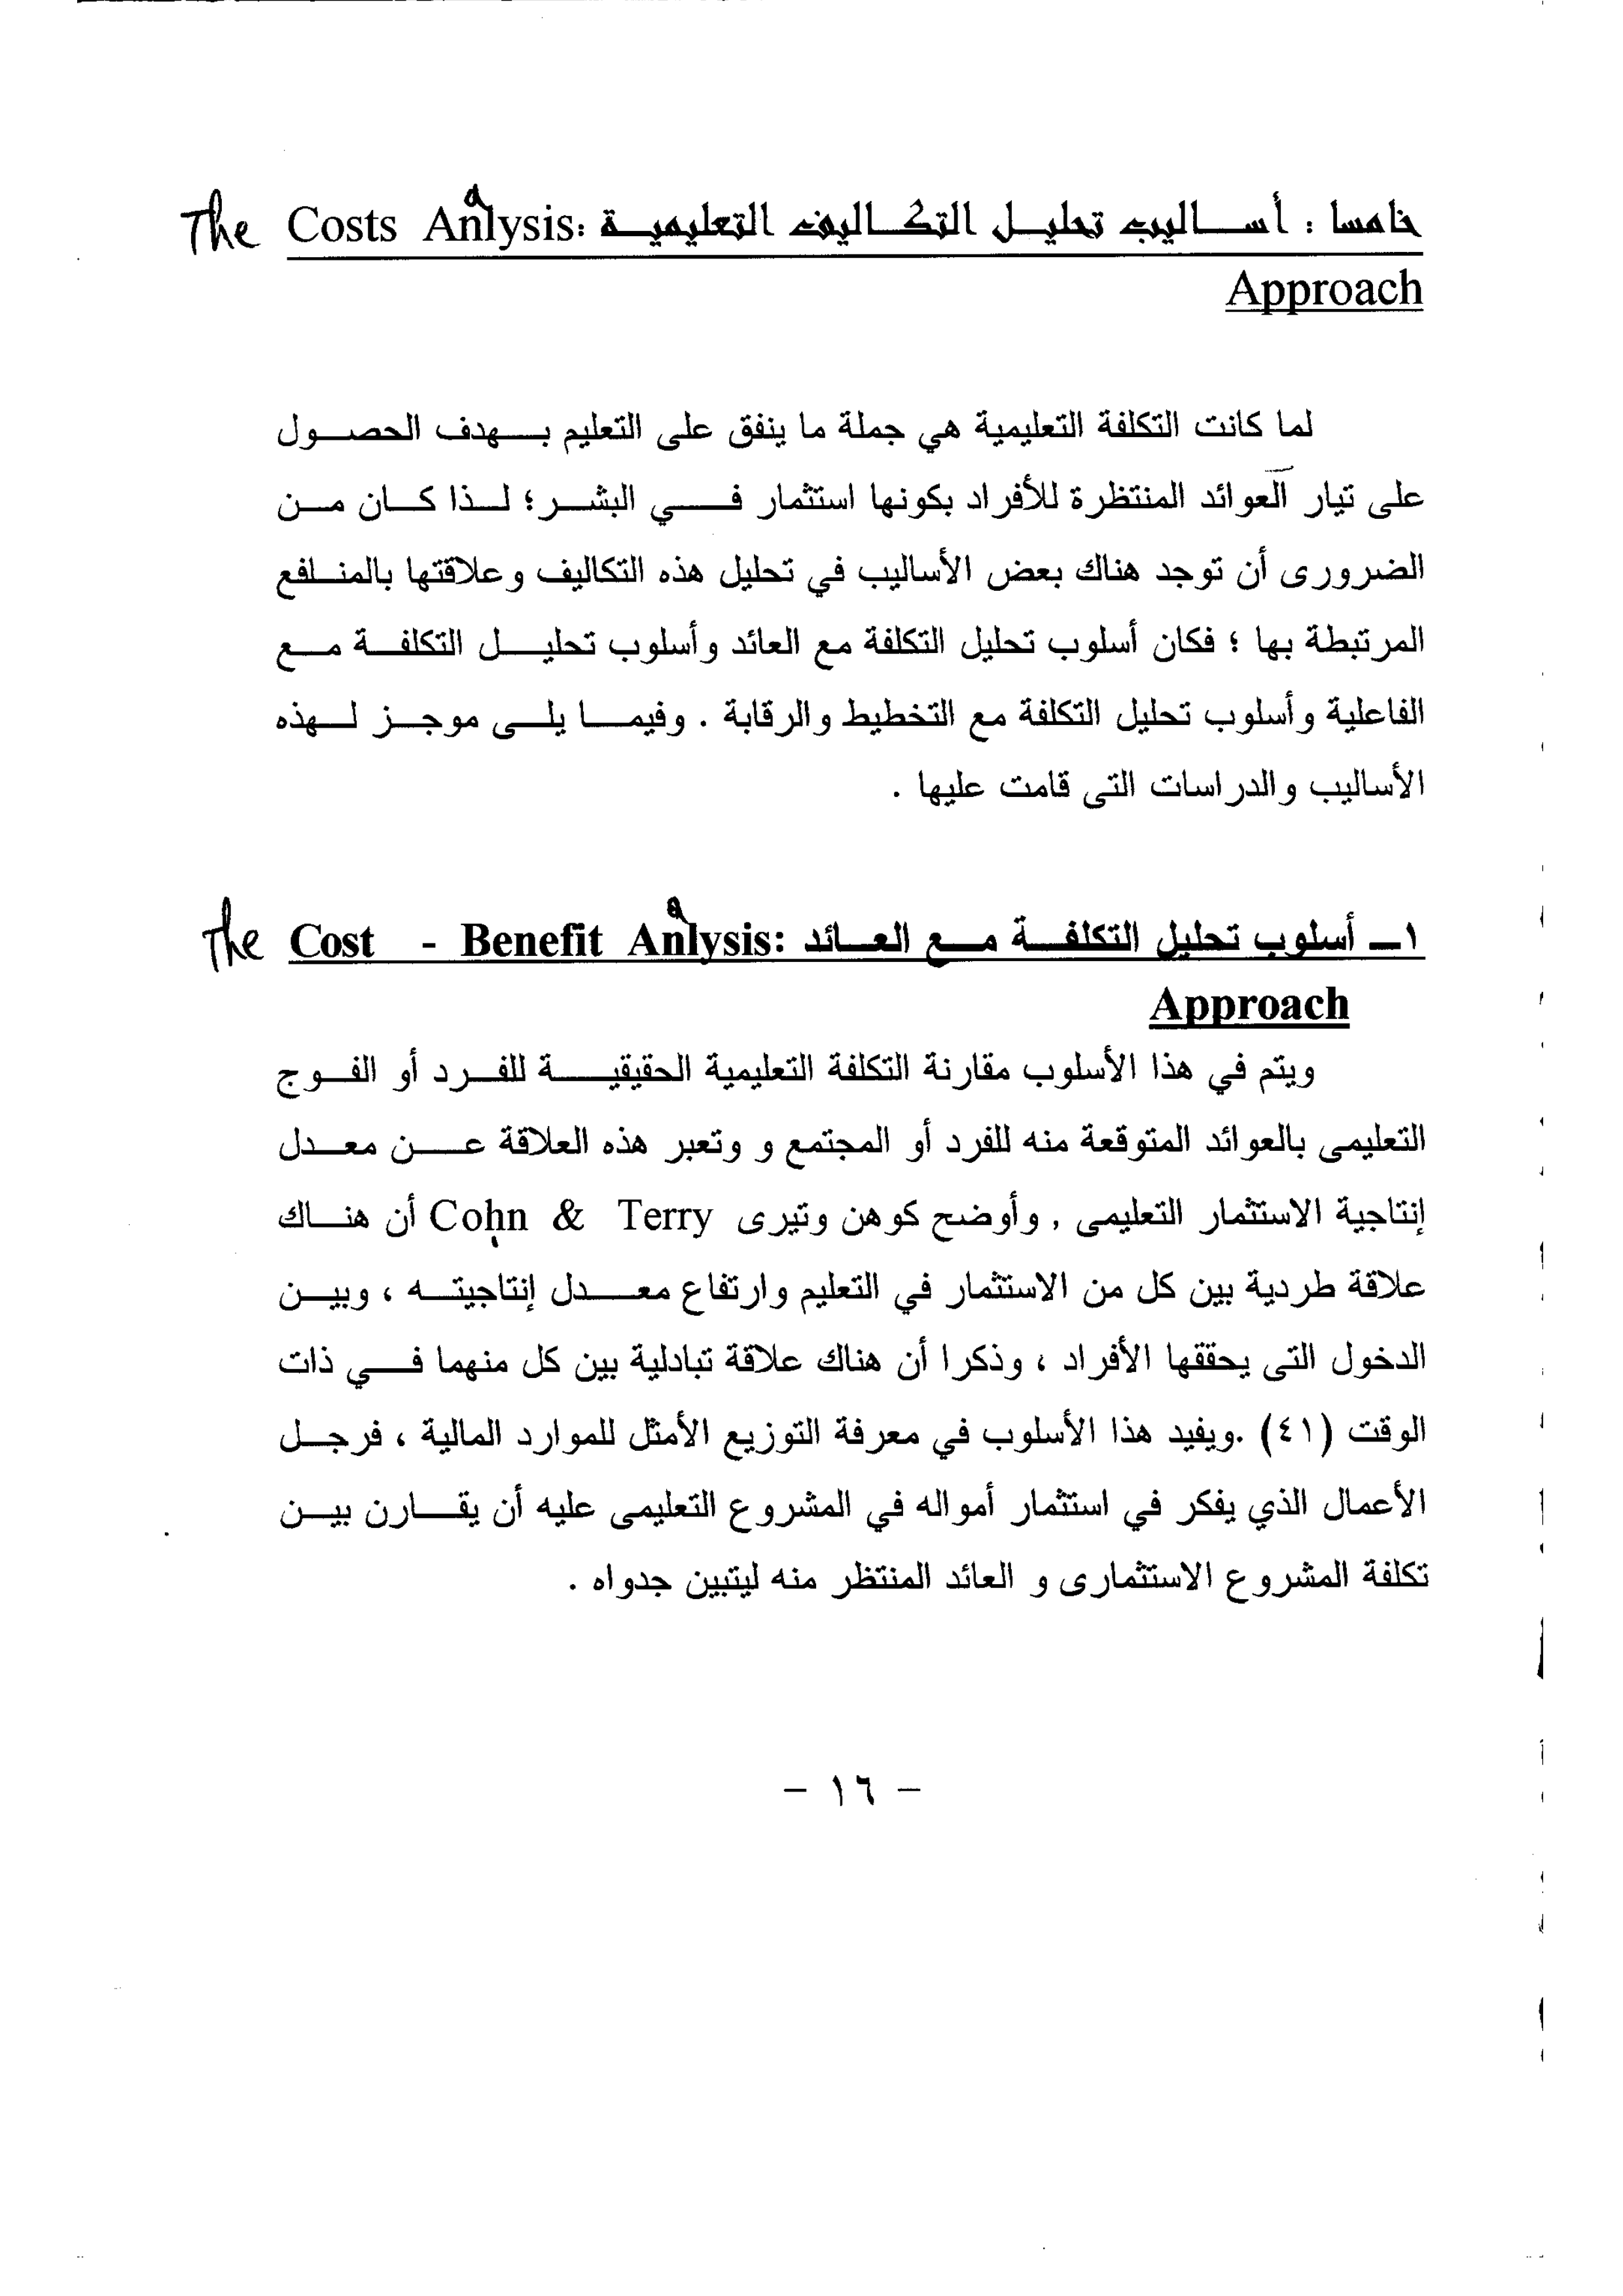 خامسا : أساليب تحليل التكاليف التعليمية :The Costs Analysis
Approach
لما كانت التكلفة التعليمية هي جملة ما ينفق على التعليم بهدف الحصول
على تيار العوائد المنتظرة للأفراد بكونها استثمار في البشر؛ لذا كان من
الضرورى أن توجد هناك بعض الأساليب في تحليل هذه التكاليف وعلاقتها بالمنافع
المرتبطة بها ؛ فكان أسلوب تحليل التكلفة مع العائد وأسلوب تحليل التكلفة مع
الفاعلية وأسلوب تحليل التكلفة مع التخطيط والرقابة . وفيما يلى موجز لهذه
الأساليب والدراسات التى قامت عليها .
١ـ أسلوب تحليل التكلفة مع العائد :The Cost - Benefit Analysis
Approach
ويتم في هذا الأسلوب مقارنة التكلفة التعليمية الحقيقية للفرد أو الفوج
التعليمى بالعوائد المتوقعة منه للفرد أو المجتمع و وتعبر هذه العلاقة عن معدل
إنتاجية الاستثمار التعليمى , وأوضح كوهن وتيرى Cohn & Terry أن هناك
علاقة طردية بين كل من الاستثمار في التعليم وارتفاع معدل إنتاجيته ، وبين
الدخول التى يحققها الأفراد ، وذكرا أن هناك علاقة تبادلية بين كل منهما في ذات
الوقت (٤١) .ويفيد هذا الأسلوب في معرفة التوزيع الأمثل للموارد المالية ، فرجل
الأعمال الذي يفكر في استثمار أمواله في المشروع التعليمى عليه أن يقارن بين
تكلفة المشروع الاستثمارى و العائد المنتظر منه ليتبين جدواه .
- ١٦ -